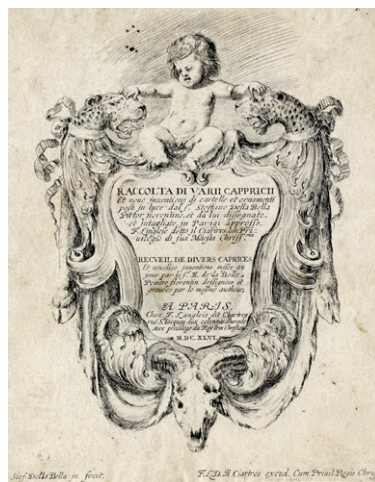 RACCOLTA DI VARII CAPPRICII
Et noue inuentioni di cartelle et ornamenti
posti in luce dal S. Stefano Della Bella
Pittor fiorentino, et da lui disegnate,
et intagliate in Parigi appresso
F. Langlois detto il Ciartres, con Pri-
uilegio di sua Maesta Christ.
RECVEIL DE DIVERS CAPRICES
Et nouelles inuentions mises au
iour par le Sr. E. de la Bella,
Peintre florentin dessignées et
grauées par le mesme autheur,
A PARIS,
Chez F. Langlois dit Chartres
rue S. Iacques aux colonnes
Auec priuilege du Roy
M. DC. XLVI.
Stef. Della Bella in. fecit.
F. L. D. Ciartres excud. Cum Privil. Regis Chris